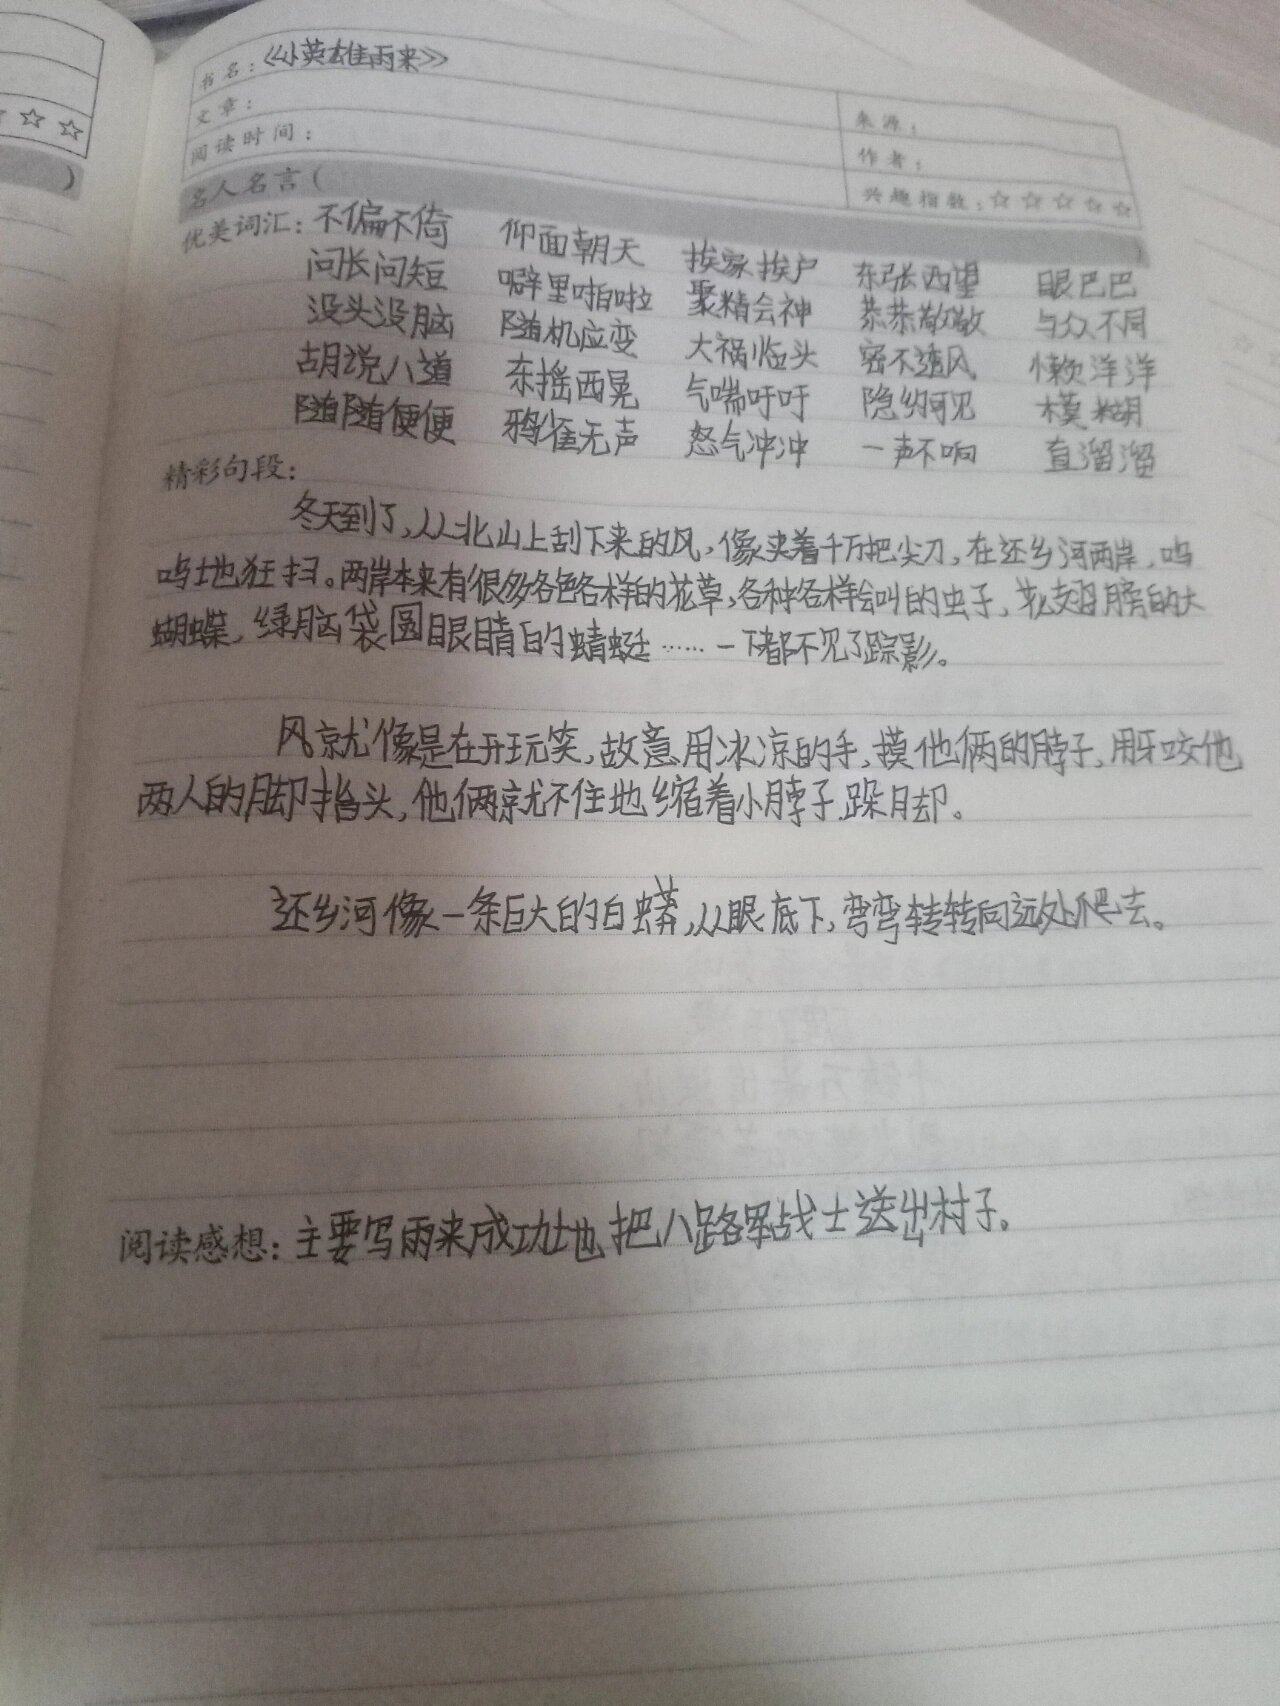 书名：《小英雄雨来》
文章：
来源：
阅读时间：
作者：
兴趣指数：☆☆☆☆☆
名人名言（ ）
优美词汇：不偏不倚 仰面朝天 挨家挨户 东张西望 眼巴巴
问长问短 噼里啪啦 聚精会神 恭恭敬敬 与众不同
没头没脑 随机应变 大祸临头 密不透风 懒洋洋
胡说八道 东摇西晃 气喘吁吁 隐约可见 模糊
随随便便 鸦雀无声 怒气冲冲 一声不响 直溜溜
精彩句段：
冬天到了，从北山上刮下来的风，像夹着千万把尖刀，在还乡河两岸，呜
呜地狂扫。两岸本来有很多各色各样的花草，各种各样会叫的虫子，花翅膀的大
蝴蝶，绿脑袋圆眼睛的蜻蜓……一下都不见了踪影。
风就像是在开玩笑，故意用冰凉的手，摸他俩的脖子，用牙咬他
两人的脚指头，他俩就不住地缩着小脖子跺脚。
还乡河像一条巨大的白蟒，从眼底下，弯弯转转向远处爬去。
阅读感想：主要写雨来成功地把八路军战士送出村子。